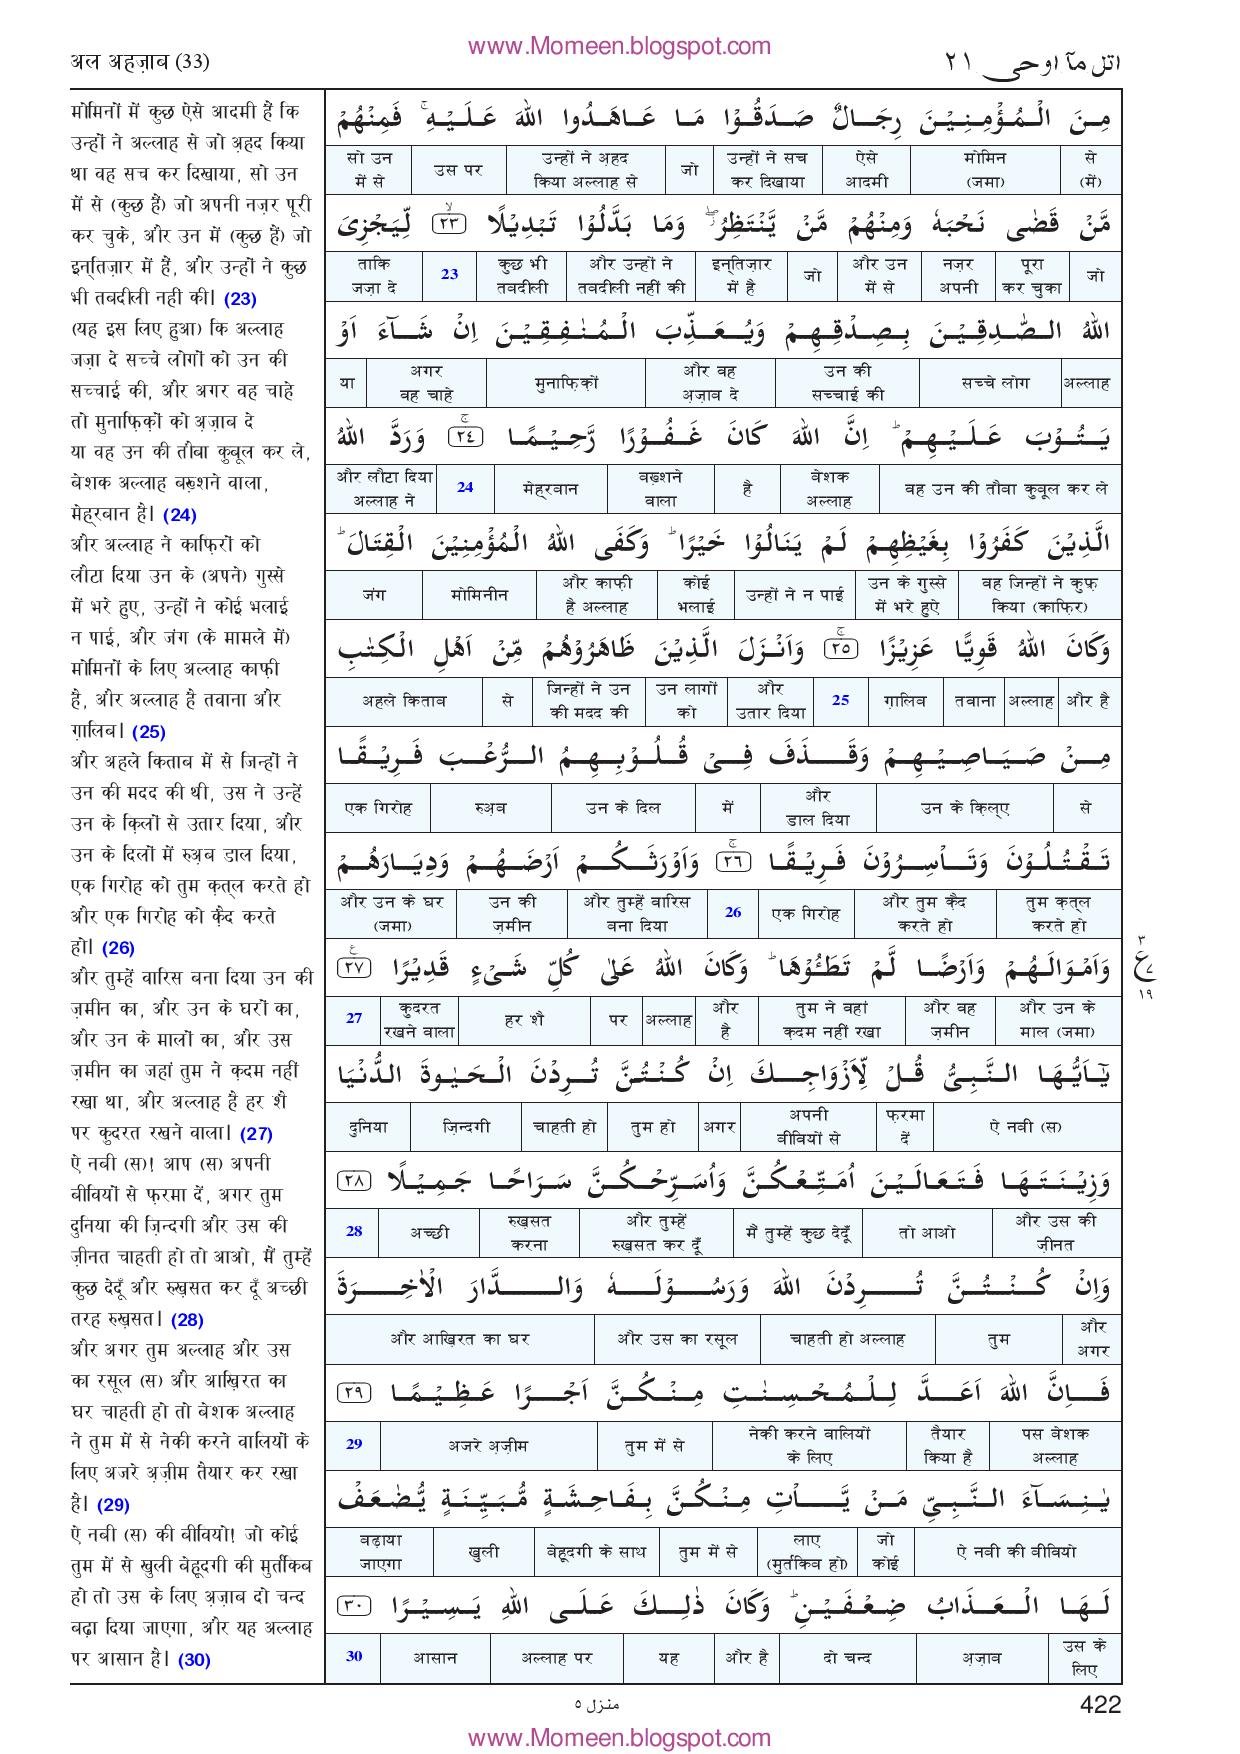 www.Momeen.blogspot.com
अल अहज़ाब (33)
اتل مآ اوحی ٢١
मोमिनों में कुछ ऐसे आदमी हैं कि
उन्हों ने अल्लाह से जो अ़हद किया
था वह सच कर दिखाया, सो उन
में से (कुछ हैं) जो अपनी नज़र पूरी
कर चुके, और उन में (कुछ हैं) जो
इन्तिज़ार में हैं, और उन्हों ने कुछ
भी तबदीली नहीं की। (23)
(यह इस लिए हुआ) कि अल्लाह
जज़ा दे सच्चे लोगों को उन की
सच्चाई की, और अगर वह चाहे
तो मुनाफ़िक़ों को अ़ज़ाब दे
या वह उन की तौबा कुबूल कर ले,
बेशक अल्लाह बख़्शने वाला,
मेह्रबान है। (24)
और अल्लाह ने काफ़िरों को
लौटा दिया उन के (अपने) गुस्से
में भरे हुए, उन्हों ने कोई भलाई
न पाई, और जंग (के मामले में)
मोमिनों के लिए अल्लाह काफ़ी
है, और अल्लाह है तवाना और
ग़ालिब। (25)
और अहले किताब में से जिन्हों ने
उन की मदद की थी, उस ने उन्हें
उन के क़िलों से उतार दिया, और
उन के दिलों में रुअ़ब डाल दिया,
एक गिरोह को तुम क़त्ल करते हो
और एक गिरोह को क़ैद करते
हो। (26)
और तुम्हें वारिस बना दिया उन की
ज़मीन का, और उन के घरों का,
और उन के मालों का, और उस
ज़मीन का जहां तुम ने क़दम नहीं
रखा था, और अल्लाह है हर शै
पर कुदरत रखने वाला। (27)
ऐ नबी (स)! आप (स) अपनी
बीवियों से फ़रमा दें, अगर तुम
दुनिया की ज़िन्दगी और उस की
ज़ीनत चाहती हो तो आओ, मैं तुम्हें
कुछ देदूँ और रुख़सत कर दूँ अच्छी
तरह रुख़सत। (28)
और अगर तुम अल्लाह और उस
का रसूल (स) और आख़िरत का
घर चाहती हो तो बेशक अल्लाह
ने तुम में से नेकी करने वालियों के
लिए अजरे अ़ज़ीम तैयार कर रखा
है। (29)
ऐ नबी (स) की बीवियो! जो कोई
तुम में से खुली बेहूदगी की मुर्तकिब
हो तो उस के लिए अ़ज़ाब दो चन्द
बढ़ा दिया जाएगा, और यह अल्लाह
पर आसान है। (30)
مِنَ الْمُؤْمِنِيْنَ رِجَالٌ صَدَقُوْا مَا عَاهَدُوا اللهَ عَلَيْهِ ۚ فَمِنْهُمْ
सो उन उस पर उन्हों ने अ़हद जो उन्हों ने सच ऐसे मोमिन से
में से किया अल्लाह से कर दिखाया आदमी (जमा) (में)
مَّنْ قَضٰى نَحْبَهٗ وَمِنْهُمْ مَّنْ يَّنْتَظِرُ ۖ وَمَا بَدَّلُوْا تَبْدِيْلًا ٢٣ لِّيَجْزِىَ
ताकि 23 कुछ भी और उन्हों ने इन्तिज़ार जो और उन नज़र पूरा जो
जज़ा दे तबदीली तबदीली नहीं की में है में से अपनी कर चुका
اللهُ الصّٰدِقِيْنَ بِصِدْقِهِمْ وَيُعَذِّبَ الْمُنٰفِقِيْنَ اِنْ شَآءَ اَوْ
या अगर मुनाफ़िक़ों और वह उन की सच्चे लोग अल्लाह
वह चाहे अ़ज़ाब दे सच्चाई की
يَتُوْبَ عَلَيْهِمْ ؕ اِنَّ اللهَ كَانَ غَفُوْرًا رَّحِيْمًا ٢٤ وَرَدَّ اللهُ
और लौटा दिया 24 मेह्रबान बख़्शने है बेशक वह उन की तौबा कुबूल कर ले
अल्लाह ने वाला अल्लाह
الَّذِيْنَ كَفَرُوْا بِغَيْظِهِمْ لَمْ يَنَالُوْا خَيْرًا ؕ وَكَفَى اللهُ الْمُؤْمِنِيْنَ الْقِتَالَ ؕ
जंग मोमिनीन और काफ़ी कोई उन्हों ने न पाई उन के गुस्से वह जिन्हों ने कुफ़
है अल्लाह भलाई में भरे हुऐ किया (काफ़िर)
وَكَانَ اللهُ قَوِيًّا عَزِيْزًا ٢٥ وَاَنْزَلَ الَّذِيْنَ ظَاهَرُوْهُمْ مِّنْ اَهْلِ الْكِتٰبِ
अहले किताब से जिन्हों ने उन उन लागों और 25 ग़ालिब तवाना अल्लाह और है
की मदद की को उतार दिया
مِنْ صَيَاصِيْهِمْ وَقَذَفَ فِىْ قُلُوْبِهِمُ الرُّعْبَ فَرِيْقًا
एक गिरोह रुअ़ब उन के दिल में और उन के क़िल्ए से
डाल दिया
تَقْتُلُوْنَ وَتَاْسِرُوْنَ فَرِيْقًا ٢٦ وَاَوْرَثَكُمْ اَرْضَهُمْ وَدِيَارَهُمْ
और उन के घर उन की और तुम्हें वारिस 26 एक गिरोह और तुम क़ैद तुम क़त्ल
(जमा) ज़मीन बना दिया करते हो करते हो
وَاَمْوَالَهُمْ وَاَرْضًا لَّمْ تَطَئُوْهَا ؕ وَكَانَ اللهُ عَلٰى كُلِّ شَىْءٍ قَدِيْرًا ٢٧
٣
ع
١٩
27 कुदरत हर शै पर अल्लाह और तुम ने वहां और वह और उन के
रखने वाला है क़दम नहीं रखा ज़मीन माल (जमा)
يٰۤاَيُّهَا النَّبِىُّ قُلْ لِّاَزْوَاجِكَ اِنْ كُنْتُنَّ تُرِدْنَ الْحَيٰوةَ الدُّنْيَا
दुनिया ज़िन्दगी चाहती हो तुम हो अगर अपनी फ़रमा ऐ नबी (स)
बीवियों से दें
وَزِيْنَتَهَا فَتَعَالَيْنَ اُمَتِّعْكُنَّ وَاُسَرِّحْكُنَّ سَرَاحًا جَمِيْلًا ٢٨
28 अच्छी रुख़सत और तुम्हें मैं तुम्हें कुछ देदूँ तो आओ और उस की
करना रुख़सत कर दूँ ज़ीनत
وَاِنْ كُنْتُنَّ تُرِدْنَ اللهَ وَرَسُوْلَهٗ وَالدَّارَ الْاٰخِرَةَ
और आख़िरत का घर और उस का रसूल चाहती हो अल्लाह तुम और
अगर
فَاِنَّ اللهَ اَعَدَّ لِلْمُحْسِنٰتِ مِنْكُنَّ اَجْرًا عَظِيْمًا ٢٩
29 अजरे अ़ज़ीम तुम में से नेकी करने वालियों तैयार पस बेशक
के लिए किया है अल्लाह
يٰنِسَآءَ النَّبِىِّ مَنْ يَّاْتِ مِنْكُنَّ بِفَاحِشَةٍ مُّبَيِّنَةٍ يُّضٰعَفْ
बढ़ाया खुली बेहूदगी के साथ तुम में से लाए जो ऐ नबी की बीवियो
जाएगा (मुर्तकिब हो) कोई
لَهَا الْعَذَابُ ضِعْفَيْنِ ؕ وَكَانَ ذٰلِكَ عَلَى اللهِ يَسِيْرًا ٣٠
30 आसान अल्लाह पर यह और है दो चन्द अ़ज़ाब उस के
लिए
منزل ٥
422
www.Momeen.blogspot.com